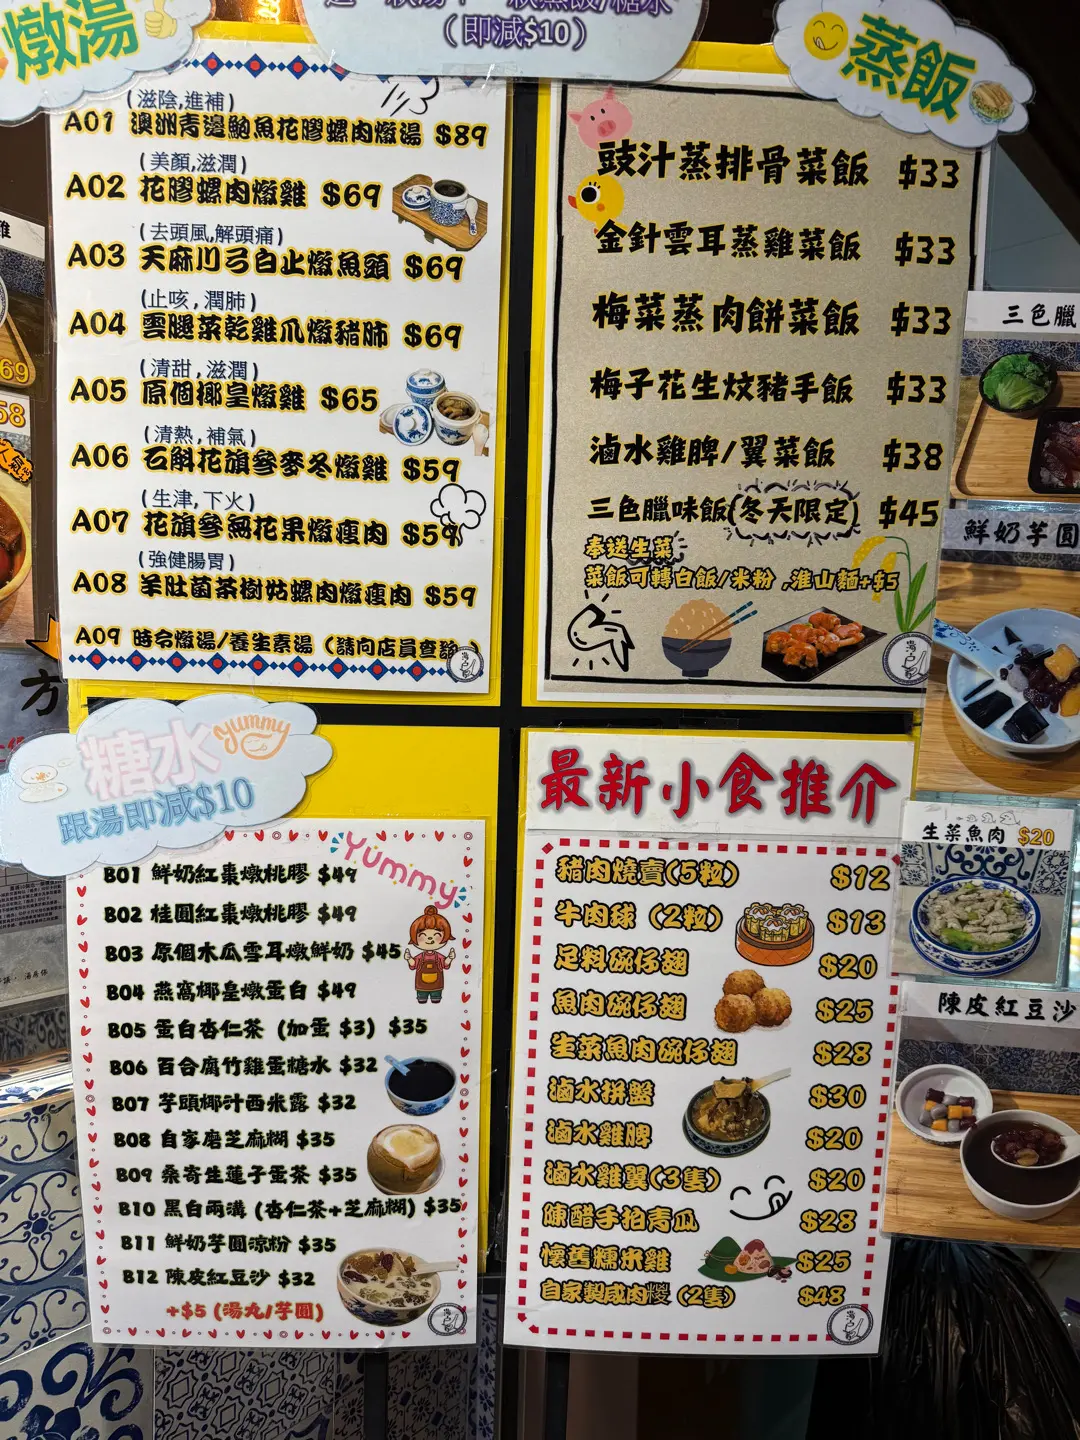 燉湯
(即減$10)
蒸飯
(滋陰,進補)
A01 澳洲青邊鮑魚花膠螺肉燉湯 $89
(美顏,滋潤)
A02 花膠螺肉燉雞 $69
(去頭風,解頭痛)
A03 天麻川弓白止燉魚頭 $69
(止咳,潤肺)
A04 雲腿菜乾雞爪燉豬肺 $69
(清甜,滋潤)
A05 原個椰皇燉雞 $65
(清熱,補氣)
A06 石斛花旗參麥冬燉雞 $59
(生津,下火)
A07 花旗參無花果燉瘦肉 $59
(強健腸胃)
A08 羊肚菌茶樹姑螺肉燉瘦肉 $59
A09 時令燉湯/養生素湯 (請向店員查詢)
豉汁蒸排骨菜飯 $33
金針雲耳蒸雞菜飯 $33
梅菜蒸肉餅菜飯 $33
梅子花生炆豬手飯 $33
滷水雞脾/翼菜飯 $38
三色臘味飯(冬天限定) $45
奉送生菜
菜飯可轉白飯/米粉,淮山麵+$5
糖水
yummy
跟湯即減$10
Yummy
B01 鮮奶紅棗燉桃膠 $49
B02 桂圓紅棗燉桃膠 $49
B03 原個木瓜雪耳燉鮮奶 $45
B04 燕窩椰皇燉蛋白 $49
B05 蛋白杏仁茶 (加蛋 $3) $35
B06 百合腐竹雞蛋糖水 $32
B07 芋頭椰汁西米露 $32
B08 自家磨芝麻糊 $35
B09 桑寄生蓮子蛋茶 $35
B10 黑白兩溝 (杏仁茶+芝麻糊) $35
B11 鮮奶芋圓涼粉 $35
B12 陳皮紅豆沙 $32
+$5 (湯丸/芋圓)
最新小食推介
豬肉燒賣(5粒) $12
牛肉球 (2粒) $13
足料碗仔翅 $20
魚肉碗仔翅 $25
生菜魚肉碗仔翅 $28
滷水拼盤 $30
滷水雞脾 $20
滷水雞翼(3隻) $20
陳醋手拍青瓜 $28
懷舊糯米雞 $25
自家製咸肉糉 (2隻) $48
三色臘
鮮奶芋圓
生菜魚肉 $20
陳皮紅豆沙
69
58